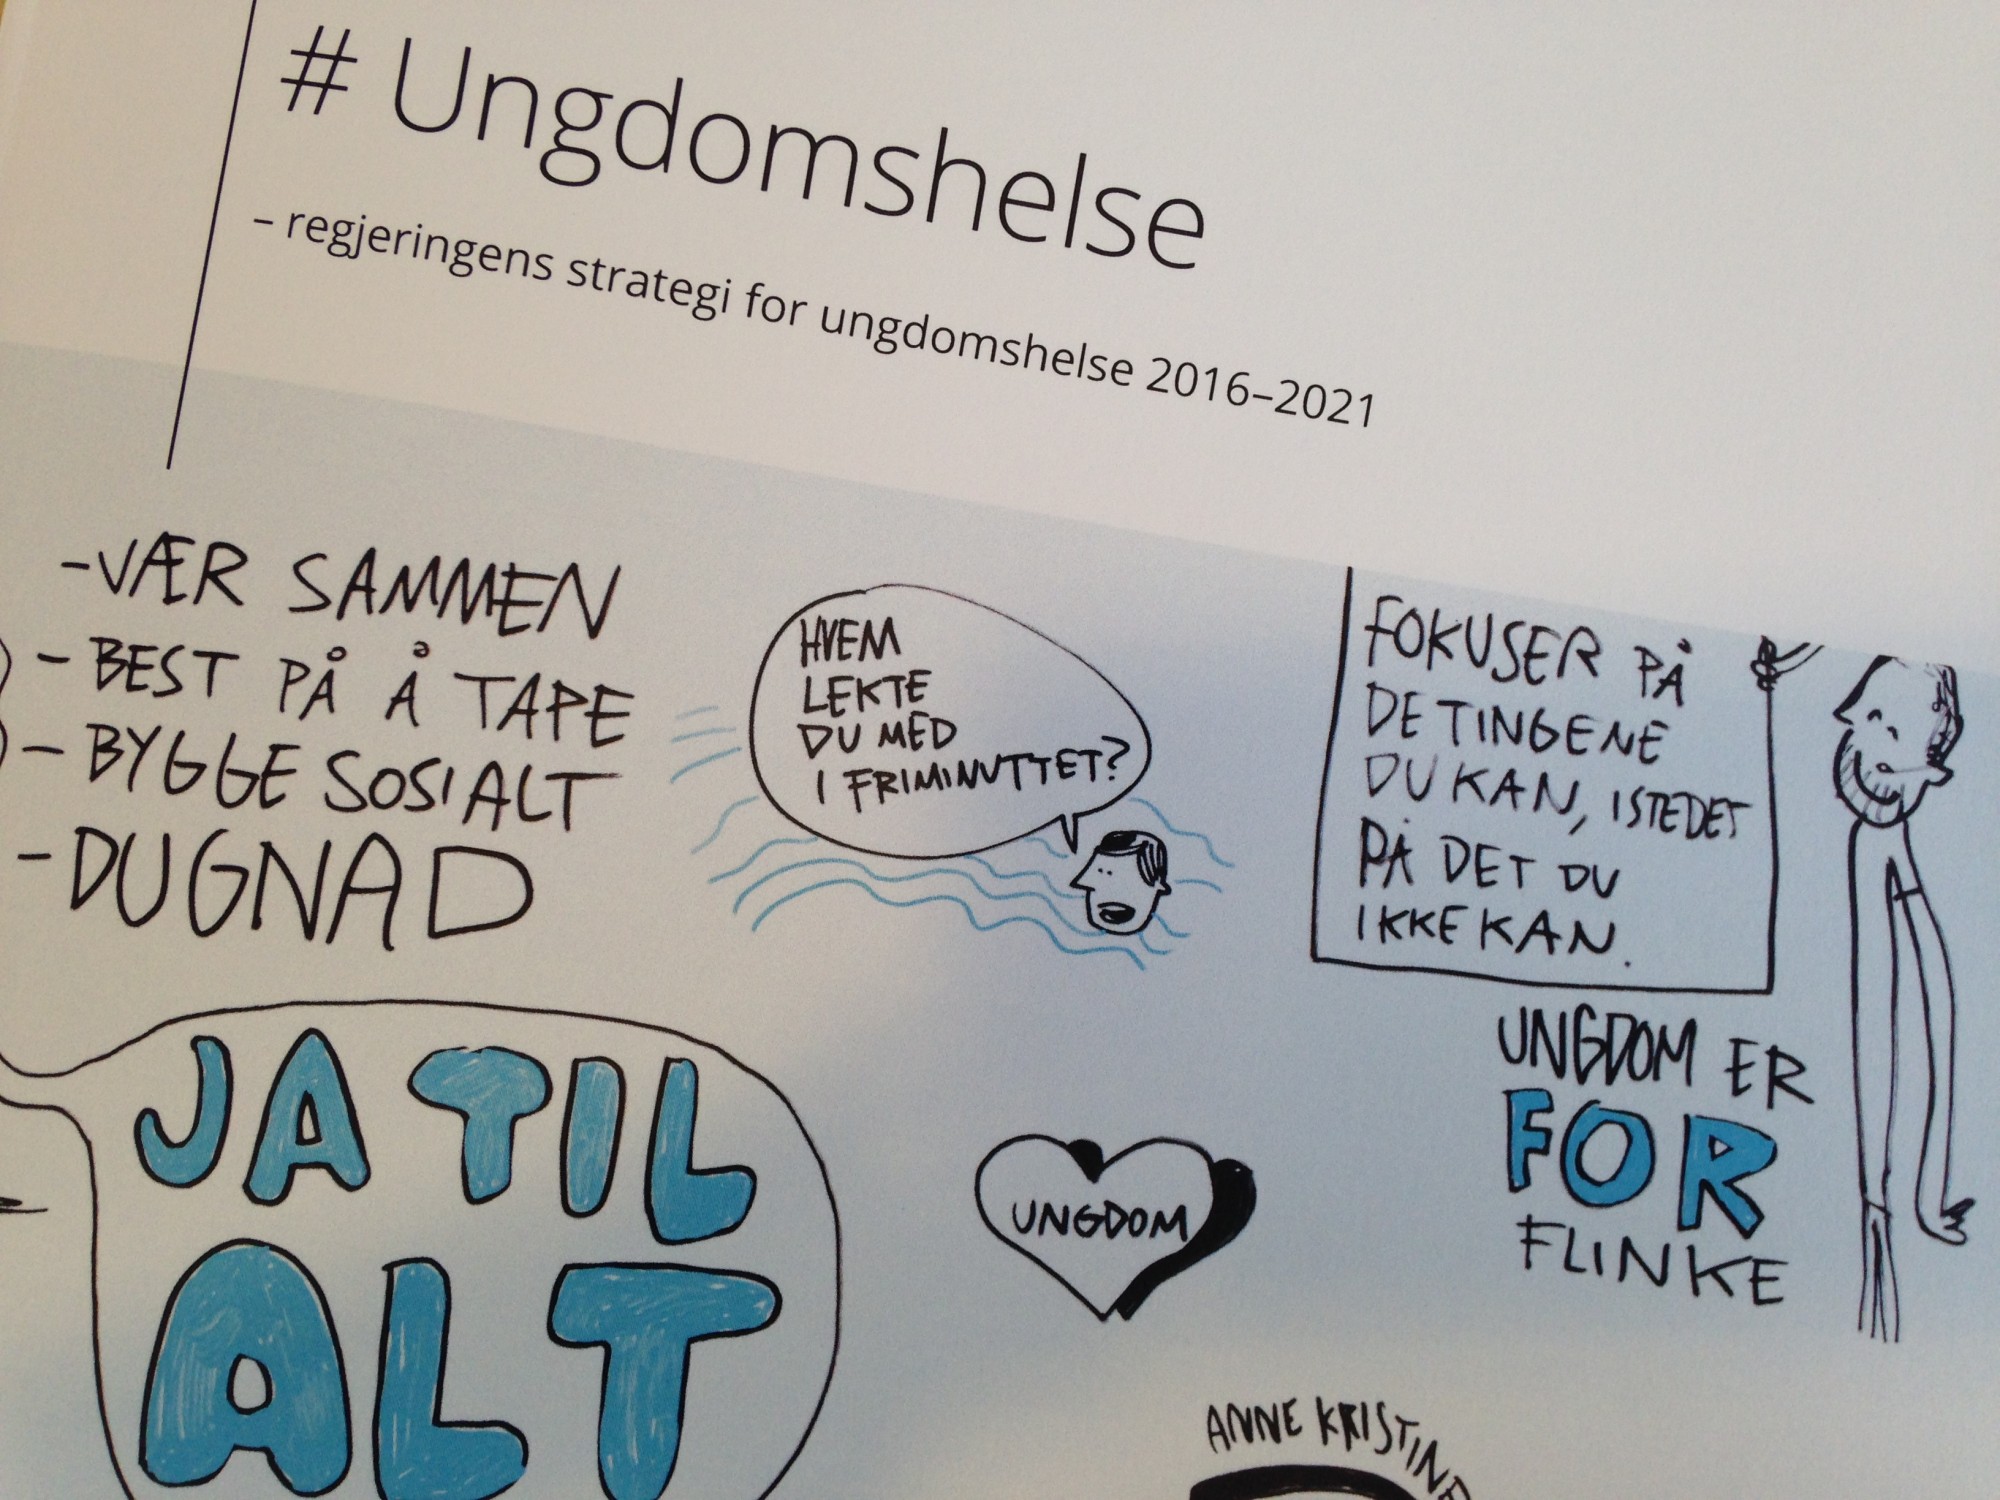 # Ungdomshelse
– regjeringens strategi for ungdomshelse 2016–2021
-VÆR SAMMEN
- BEST PÅ Å TAPE
- BYGGE SOSIALT
- DUGNAD
HVEM
LEKTE
DU MED
I FRIMINUTTET?
FOKUSER PÅ
DE TINGENE
DU KAN, ISTEDET
PÅ DET DU
IKKE KAN.
UNGDOM ER
FOR
FLINKE
JA TIL
ALT
UNGDOM
ANNE KRISTINE